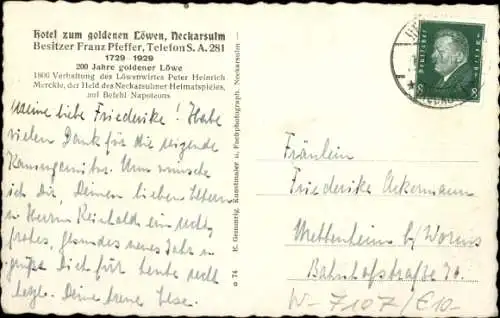 Hotel zum goldenen Löwen, Neckarsulm
Besitzer Franz Pfeffer, Telefon S. A. 281
1729 - 1929
200 Jahre goldener Löwe
1806 Verhaftung des Löwenwirtes Peter Heinrich
Merckle, der Held des Neckarsulmer Heimatspieles,
auf Befehl Napoleons
Meine liebe Friederike! Habe
vielen Dank für die reizende
Kamm. Nun wünsche
ich Dir, Deinen lieben Eltern
u. Herrn Reinhold ein recht
frohes, gesundes neues Jahr u.
grüße Dich für heute
Deine treue Else.
a 74 E. Gemmrig, Kunstmaler u. Fachphotograph, Neckarsulm
Deutsches Reich
8 8
Fräulein
Friederike Ackermann
Mettenheim b/Worms
Bahnhofstraße
W-7107/€10-